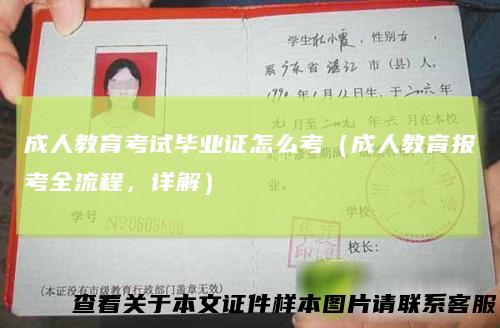 学生杜小霞，性别女，
系广东省湛江市（县）人，
一九九〇年1月12日生，于二〇〇六年
九月至二〇〇九年六月在本校
成人教育考试毕业证怎么考（成人教育报
考全流程，详解）
学号 №0603566
校长：
（本证没有市级教育行政部门盖章无效）
查看关于本文证件样本图片请联系客服